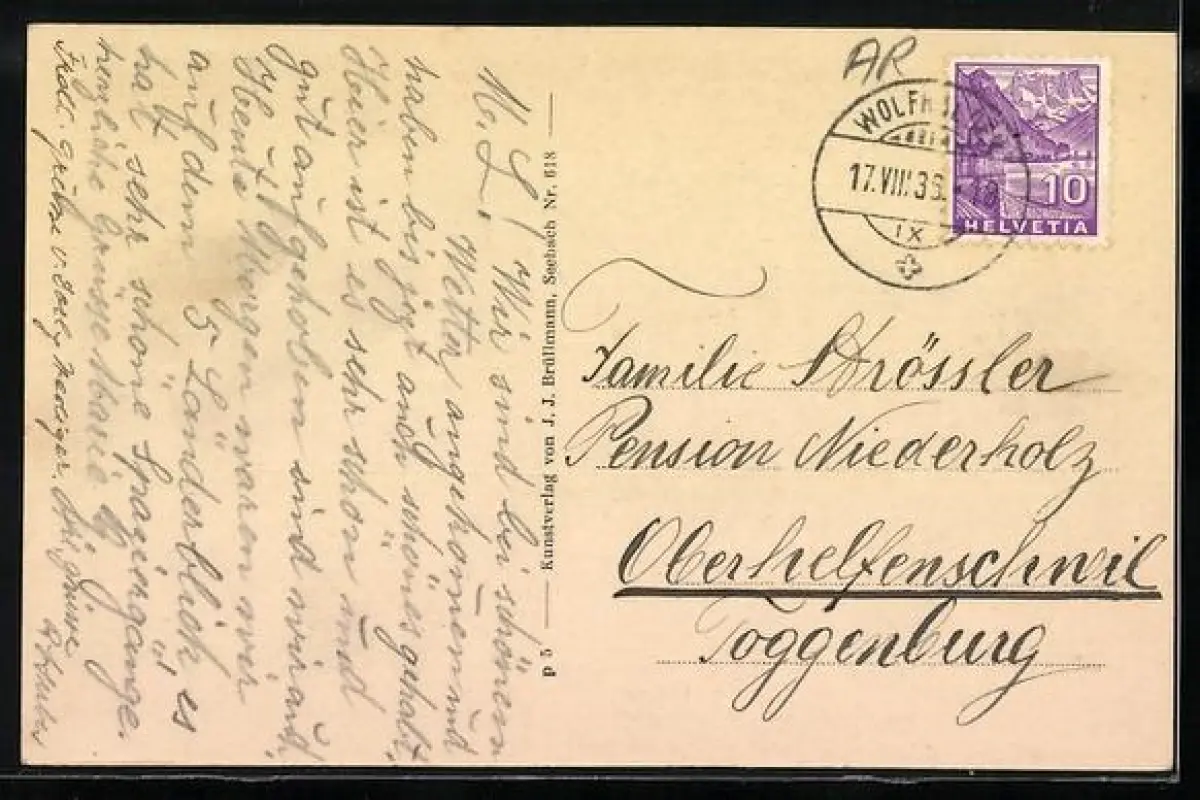 M. L!
Wir sind bei schönen
Wetter angekommen und
haben bis jezt auch schönes gehabt,
Hier ist es sehr schön und
gut aufgehoben sind wir auch.
Heute Morgen waren wir
auf dem 5 Länderblick es
hat sehr schöne Spaziergänge.
herzliche Grüsse Marie
Frdl. Grüsse v.
p 5 — Kunstverlag von J. J. Brüllmann, Seebach Nr. 618 —
AR
17.VIII.36.
IX
10
HELVETIA
Familie Strössler
Pension Niederholz
Oberhelfenschwil
Toggenburg